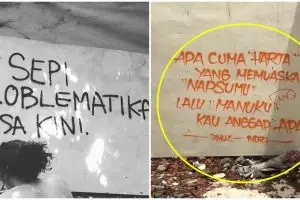 SEPI
OBLEMATIKA
SA KINI.
APA CUMA "HARTA"
YANG MEMUASKA
"NAPSUMU"
LALU "MANUKU"
KAU ANGGAP APA